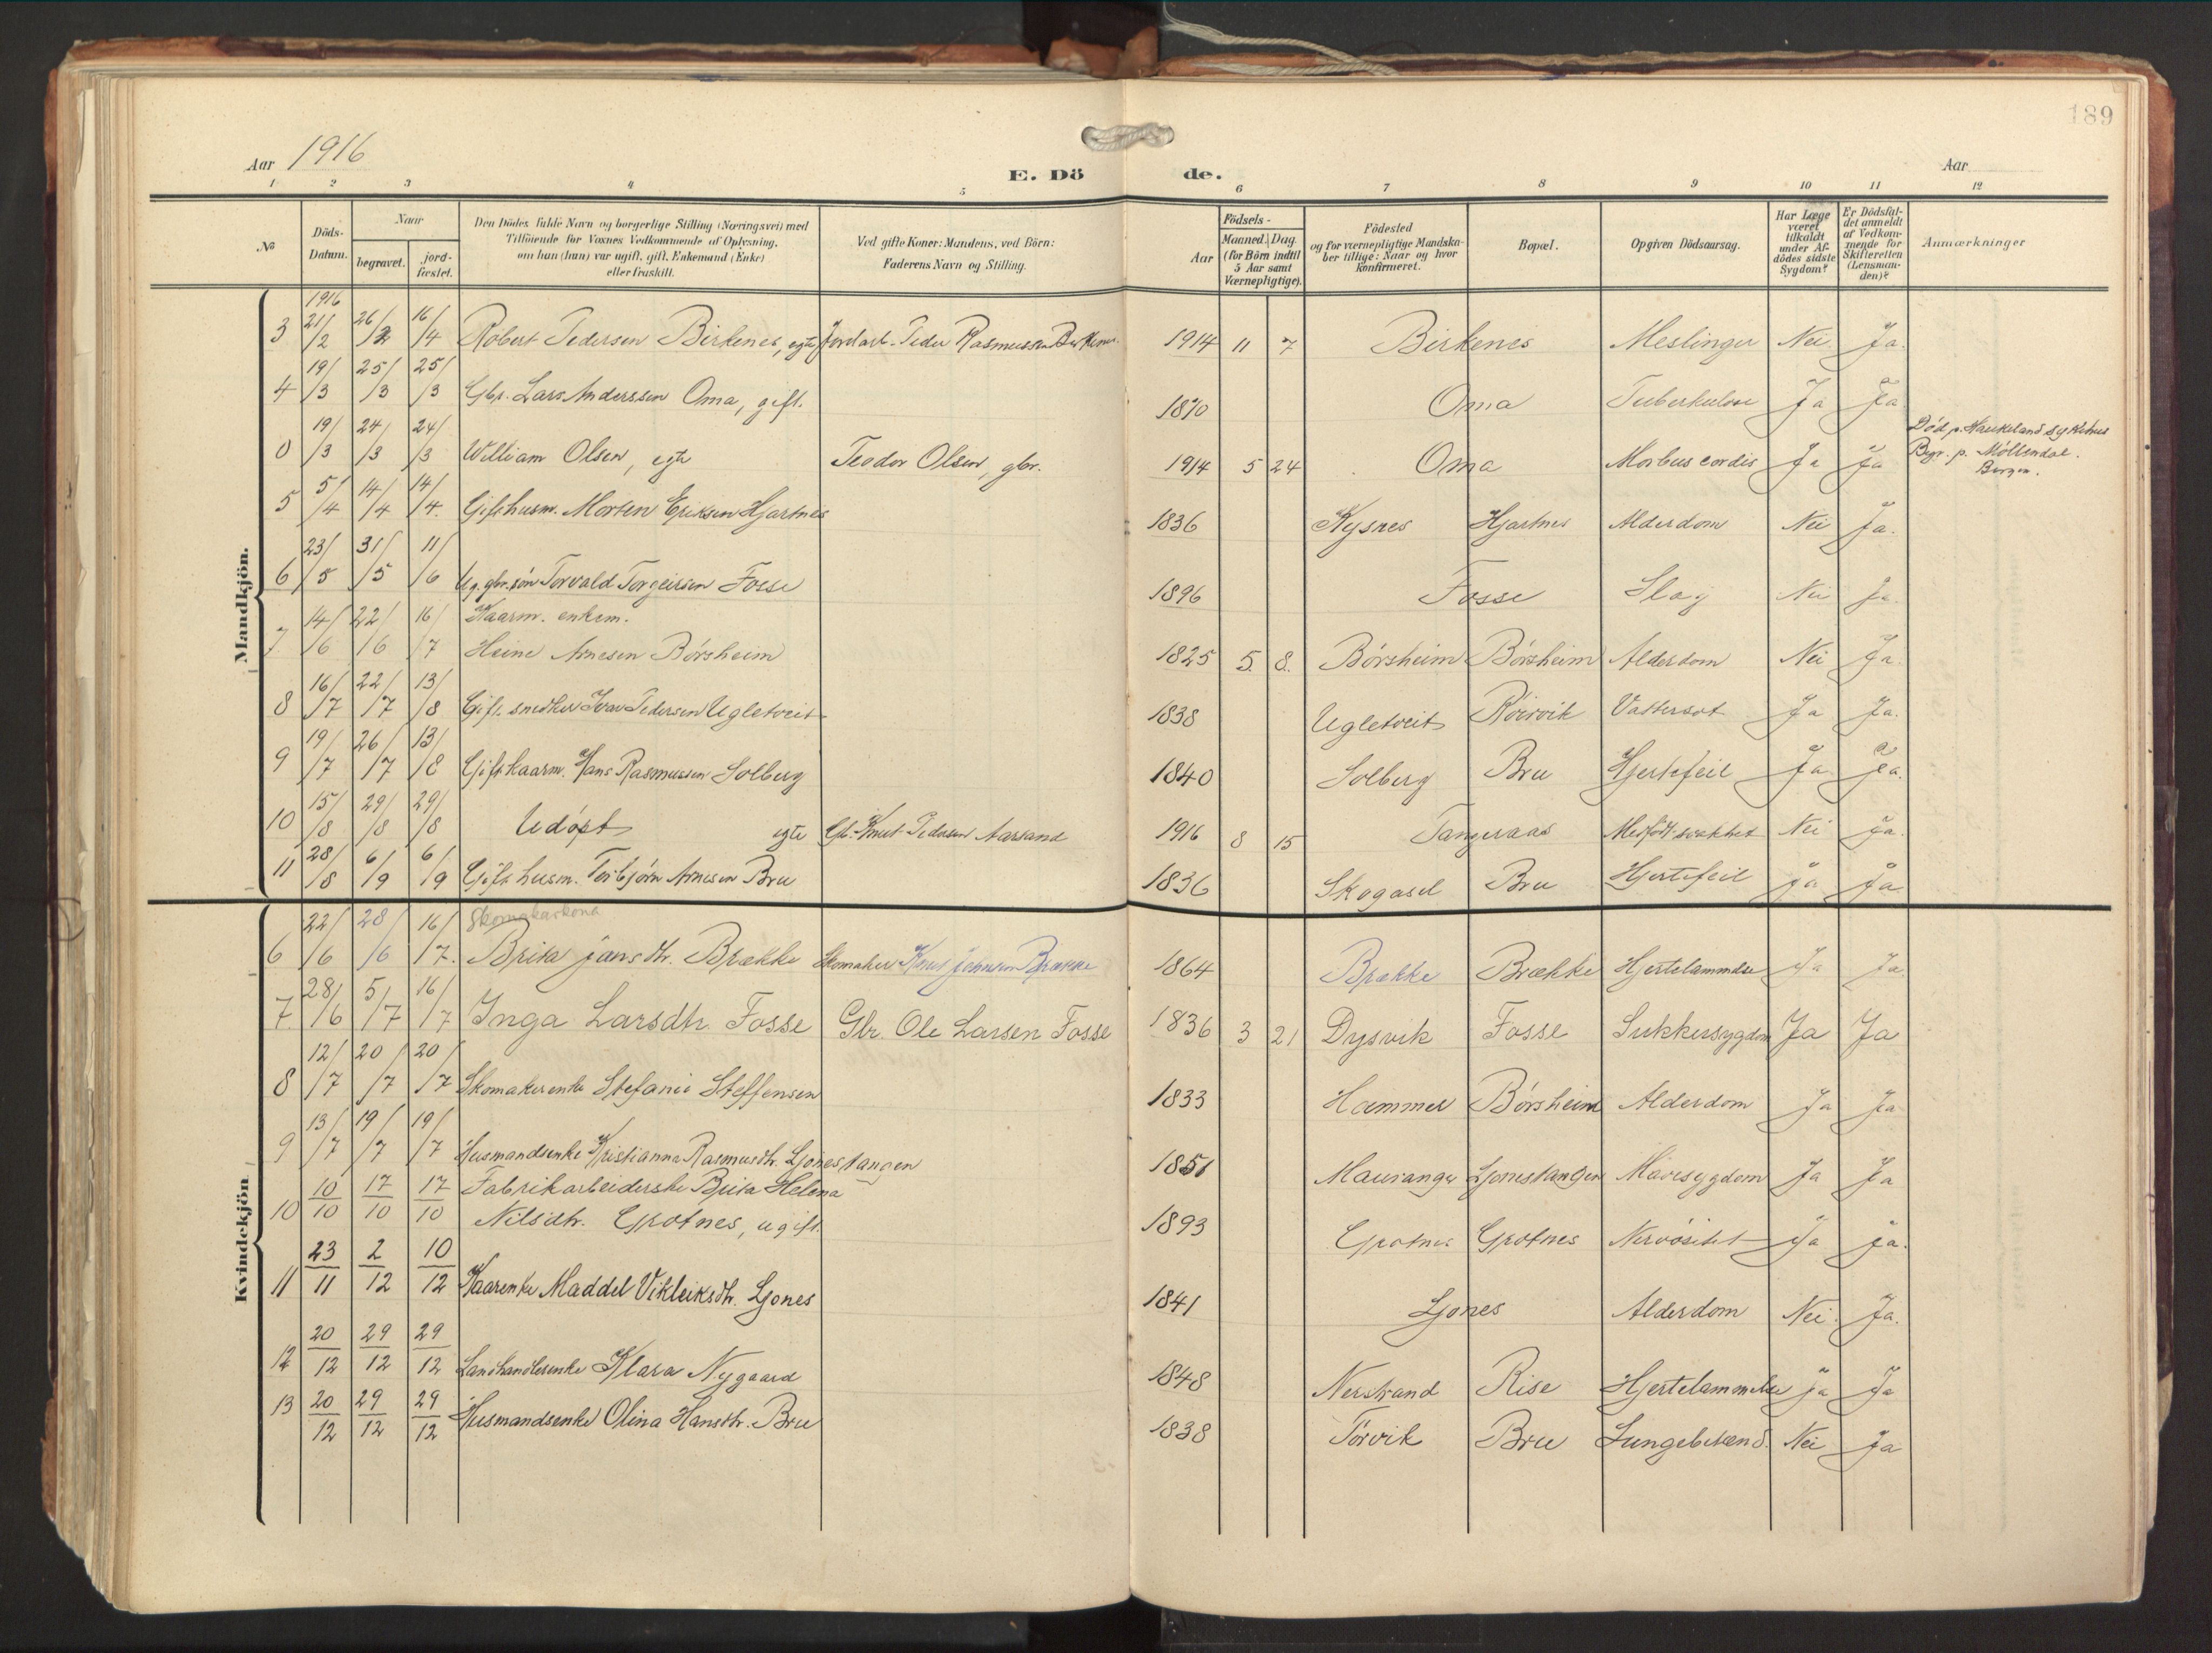 189
Aar 1916
Aar
E. Dö de.
1 2 3 4 5 6 7 8 9 10 11 12
No
Döds-Datum.
Naar
begravet.
jord-fæstet.
Den Dödes fulde Navn og borgerlige Stilling (Næringsvei) med
Tilföiende for Voxnes Vedkommende af Oplysning,
om han (hun) var ugift, gift, Enkemand (Enke)
eller fraskilt.
Ved gifte Koner: Mandens, ved Börn:
Faderens Navn og Stilling.
Födsels-
Aar
Maaned. Dag
(for Börn indtil
5 Aar samt
Værnepligtige).
Födested
og for værnepligtige Mandska-
ber tillige: Naar og hvor
konfirmeret.
Bopæl.
Opgiven Dödsaarsag.
Har Læge
været
tilkaldt
under Af-
dödes sidste
Sygdom?
Er Dödsfal-
det anmeldt
af Vedkom-
mende for
Skifteretten
(Lensman-
den)?
Anmærkninger
Mandkjön.
1916
3 21/2 26/2 16/4 Robert Pedersen Birkenes, egte Jordarb. Peder Rasmussen Birkenes 1914 11 7 Birkenes Meslinger Nei Ja.
4 19/3 25/3 25/3 Gbr. Lars Anderssen Oma, gift. 1870 Oma Tuberkulose Ja Ja
0 19/3 24/3 24/3 William Olsen, egte Teodor Olsen, gbr. 1914 5 24 Oma Morbus cordis Ja Ja Död p. Haukeland sykehus
Begr. p. Möllendal.
Bergen.
5 5/4 14/4 14/4. Gift husm. Morten Eriksen Hjartnes 1836 Kysnes Hjartnes Alderdom Nei Ja.
6 23/5 31/5 11/6 Ug. gbr.søn Torvald Torgeirsen Fosse 1896 Fosse Slag Nei Ja.
7 14/6 22/6 16/7 Kaarm. enkem.
Heine Arnesen Börsheim 1825 5. 8. Börsheim Börsheim Alderdom Nei Ja.
8 16/7 22/7 13/8 Gift. snedker Ivar Pedersen Ugletveit 1838 Ugletveit Röirvik Vattersot Ja Ja.
9 19/7 26/7 13/8 Gift kaarm. Hans Rasmussen Solberg 1840 Solberg Bru Hjertefeil Ja Ja.
10 15/8 29/8 29/8 Udøpt egte Gb. Knut Pedersen Aarsand 1916 8 15 Tangeraas Medfödt svakhet Nei Ja.
11 28/8 6/9 6/9 Gift husm. Torbjörn Arnesen Bru 1836 Skogasel Bru Hjertefeil Ja Ja
Kvindekjön.
Skomakarkona
6 22/6 28/6 16/7. Brita Jansdtr. Brække Skomaker Knut Johnsen Brække 1864 Brække Brække Hjertelammelse Ja Ja.
7 28/6 5/7 16/7 Inga Larsdtr. Fosse Gbr. Ole Larsen Fosse 1836 3 21 Dysvik Fosse Sukkersygdom Ja Ja
8 12/7 20/7 20/7 Skomakerenke Stefanie Steffensen 1833 Hammer Börsheim Alderdom Ja Ja
9 13/7 19/7 19/7 Husmandsenke Kristianna Rasmusdtr. Ljonestangen 1851 Mauranger Ljonestangen Mavesygdom Ja Ja
10 10/10 17/10 17/10 Fabrikarbeiderske Brita Helena
Nilsdtr. Grotnes, ugift. 1893 Grotnes Grotnes Nervösitet Ja Ja.
11 23/11 2/12 10/12 Kaarenke Maddel Vikleiksdtr. Ljones 1841 Ljones Alderdom Nei Ja.
12 20/12 29/12 29/12 Landhandlerenke Klara Nygaard 1848 Nerstrand Rise Hjertelammelse Ja Ja
13 20/12 29/12 29/12 Husmandsenke Olina Hansdtr. Bru 1838 Törvik Bru Lungebetænd. Nei Ja